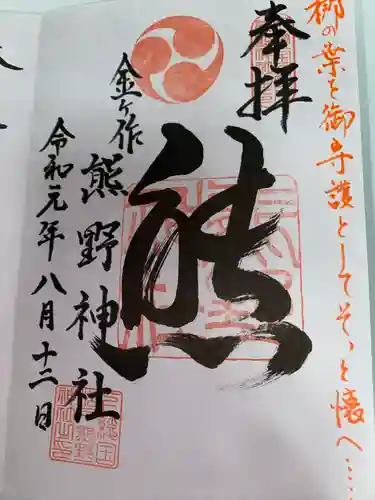 梛の葉を御守護としてそっと懐へ……
奉拝
熊
金ヶ作
熊野神社
令和元年八月十二日